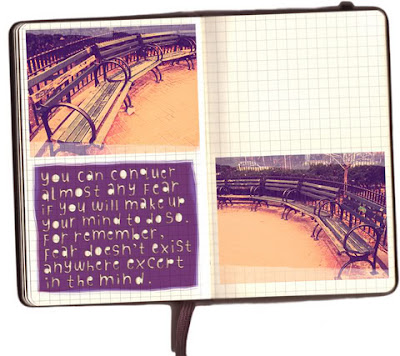 you can conquer
almost any fear
if you will make up
your mind to do so.
for remember,
fear doesn't exist
anywhere except
in the mind.